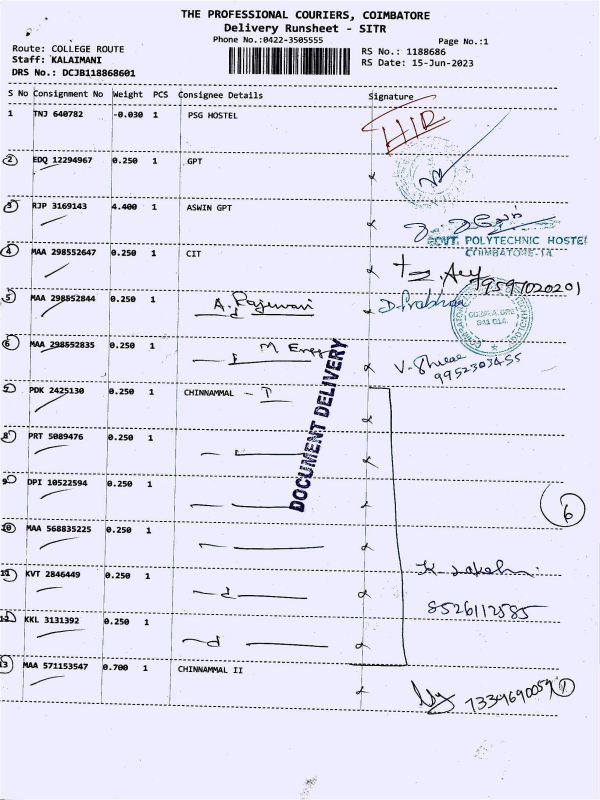 THE PROFESSIONAL COURIERS, COIMBATORE
Delivery Runsheet - SITR
Phone No.:0422-3505555
Page No.:1
Route: COLLEGE ROUTE
Staff: KALAIMANI
DRS No.: DCJB118868601
RS No.: 1188686
RS Date: 15-Jun-2023
S No Consignment No Weight PCS Consignee Details Signature
1 TNJ 640782 -0.030 1 PSG HOSTEL
2 EDQ 12294967 0.250 1 GPT
3 RJP 3169143 4.400 1 ASWIN GPT
GOVT. POLYTECHNIC HOSTEL
COIMBATORE-14
4 MAA 298552647 0.250 1 CIT
9597020201
5 MAA 298552844 0.250 1 A. Rajewari D. Prabha
COIMBATORE
641 014
6 MAA 298552835 0.250 1 M Engg
9952303455
7 PDK 2425130 0.250 1 CHINNAMMAL - I
DOCUMENT DELIVERY
8 PRT 5089476 0.250 1
9 DPI 10522594 0.250 1
6
10 MAA 568835225 0.250 1
11 KVT 2846449 0.250 1
8526112585
12 KKL 3131392 0.250 1
13 MAA 571153547 0.700 1 CHINNAMMAL II
7339690059 1